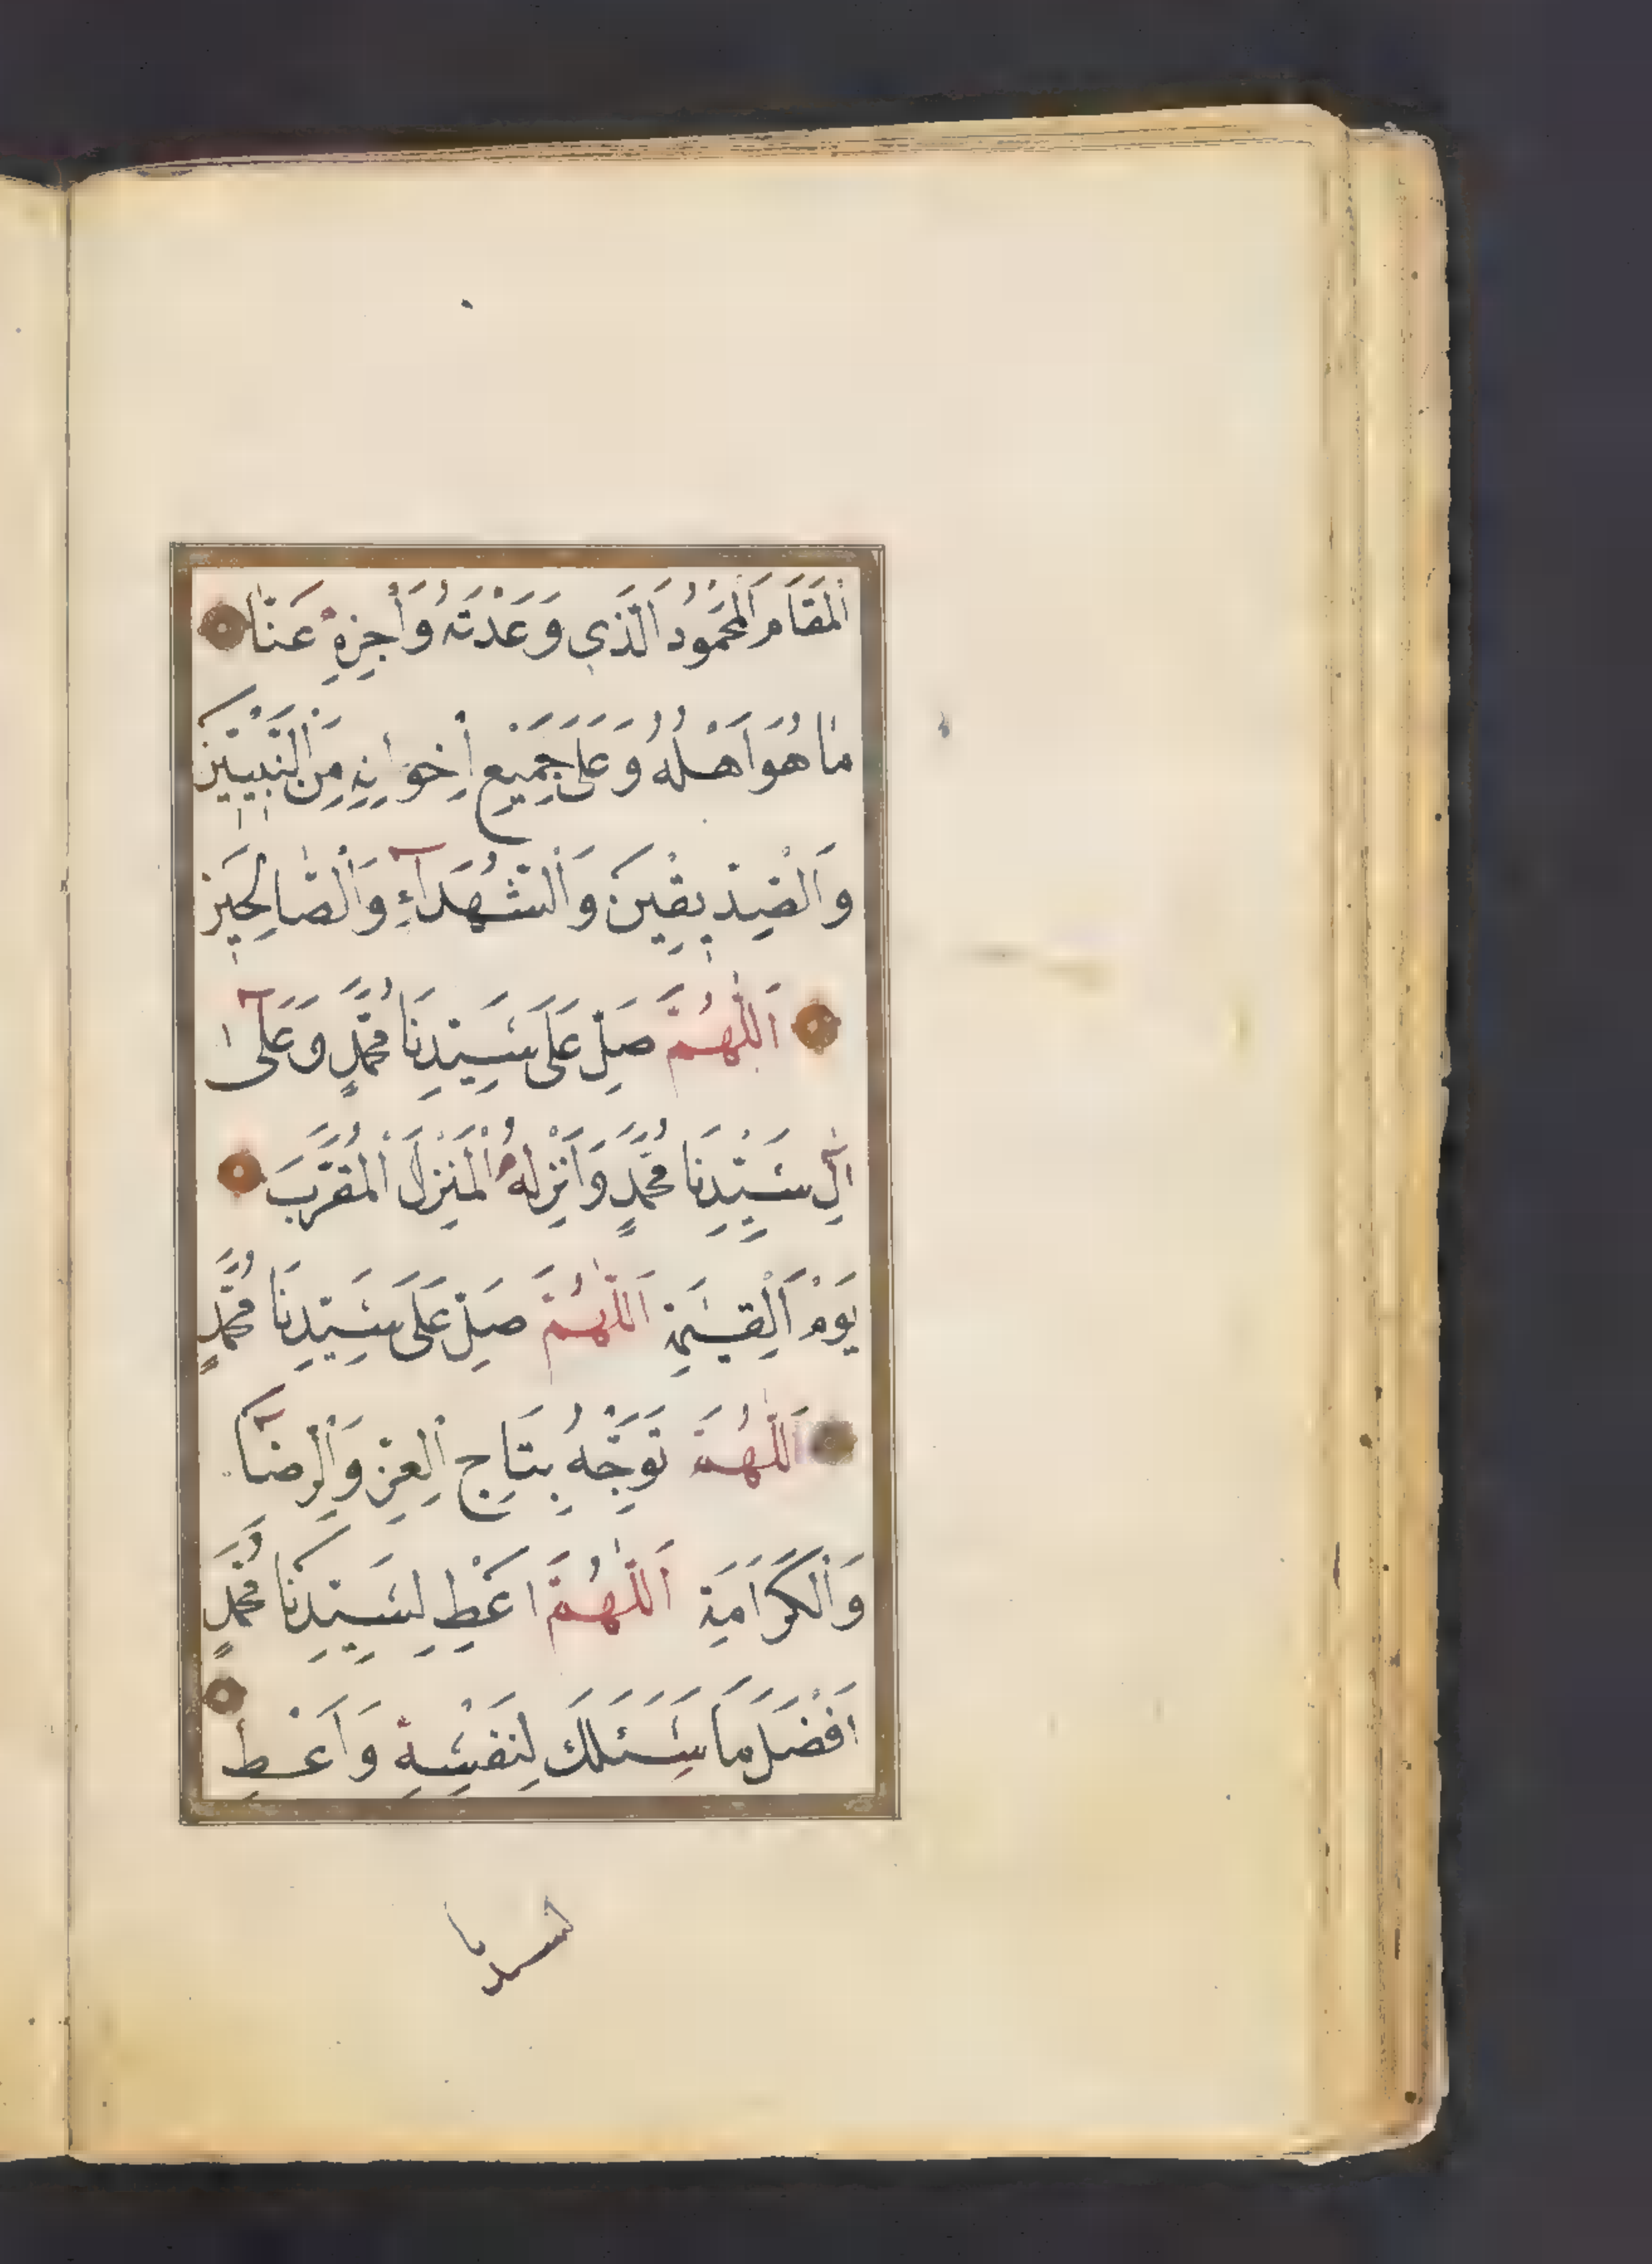 اَلْمَقَامَ الْمَحْمُودَ الَّذِي وَعَدْتَهُ وَأَجْزِهِ عَنَّا
مَا هُوَ اَهْلُهُ وَعَلَى جَمِيْعِ إِخْوَانِهِ مِنَ النَّبِيّينَ
وَالصِّدِّيقِينَ وَالشُّهَدَآءِ وَالصَّالِحِينَ
اَللّٰهُمَّ صَلِّ عَلَى سَيِّدِنَا مُحَمَّدٍ وَعَلَىٰ
اٰلِ سَيِّدِنَا مُحَمَّدٍ وَاَنْزِلْهُ الْمَنْزِلَ الْمُقَرَّبَ
يَوْمَ الْقِيٰمَةِ اَللّٰهُمَّ صَلِّ عَلَى سَيِّدِنَا مُحَمَّدٍ
اَللّٰهُمَّ تَوِّجْهُ بِتَاجِ الْعِزِّ وَالْرِضَا
وَالْكَرَامَةِ اَللّٰهُمَّ اَعْطِ لِسَيِّدِنَا مُحَمَّدٍ
اَفْضَلَ مَا سَئَلَكَ لِنَفْسِهِ وَاَعْطِ
لسيدنا